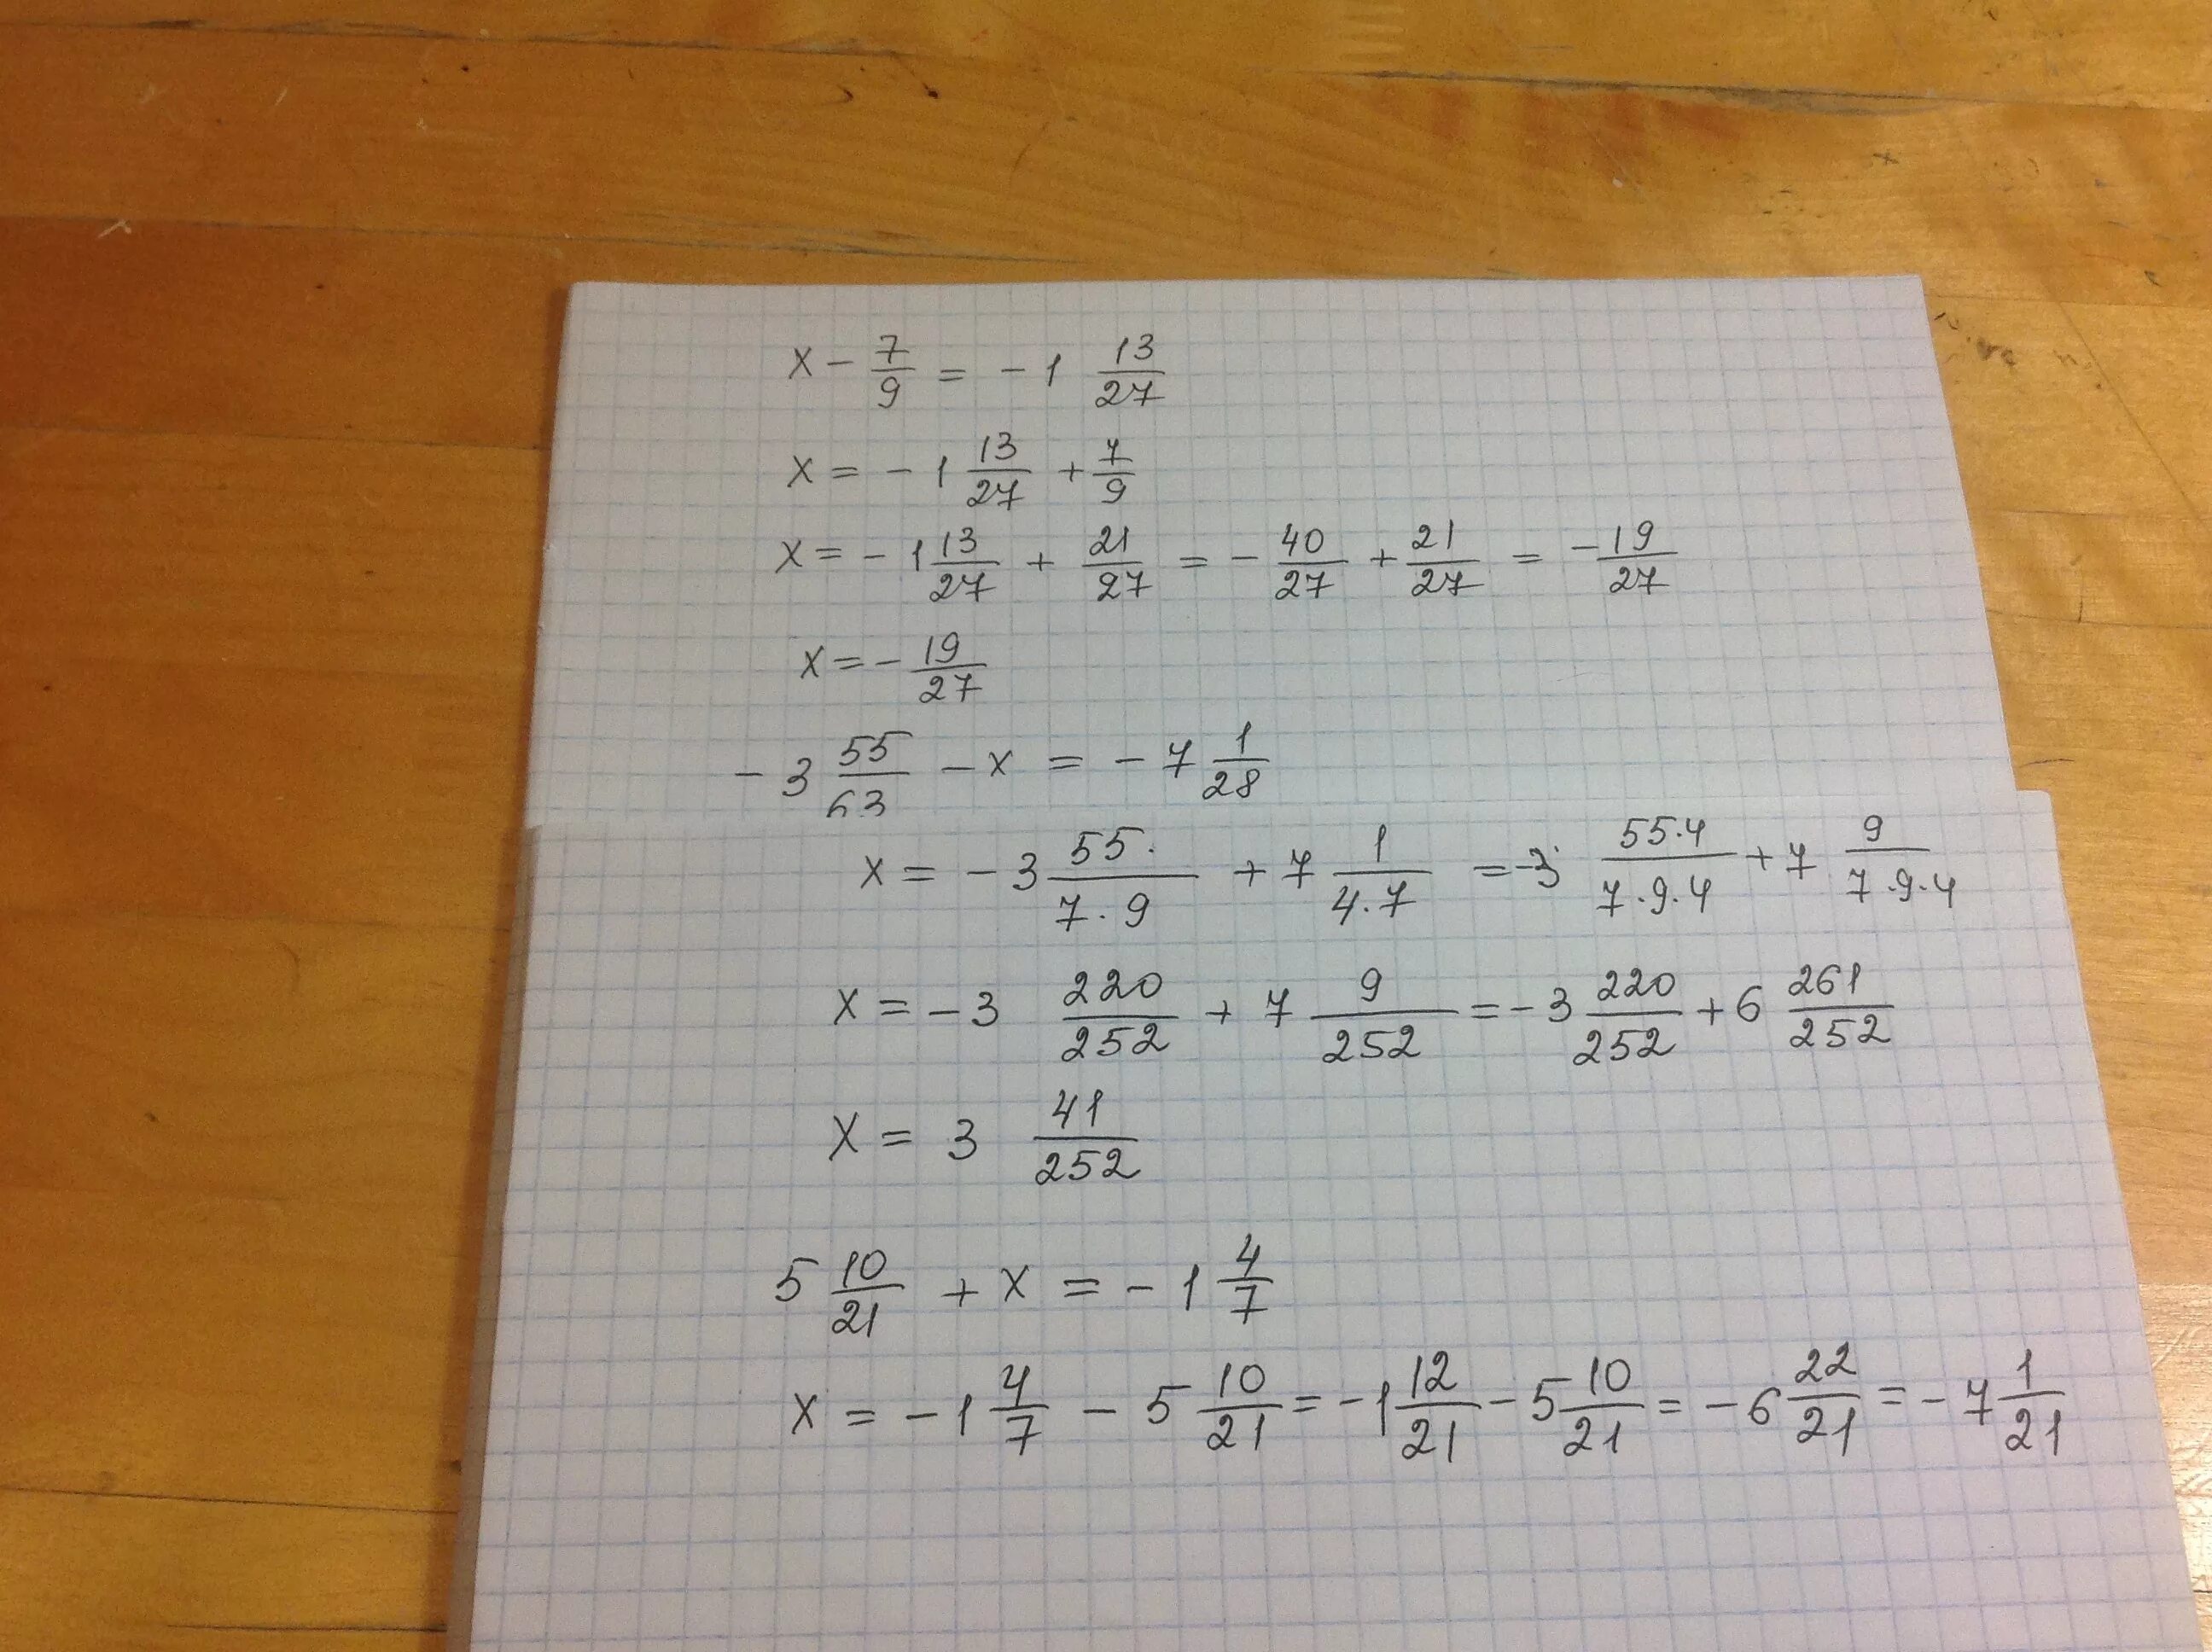 x - 7/9 = - 1 13/27
x = - 1 13/27 + 7/9
x = - 1 13/27 + 21/27 = - 40/27 + 21/27 = - 19/27
x = - 19/27
- 3 55/63 - x = - 7 1/28
x = - 3 55·/7·9 + 7 1/4·7 = -3 55·4/7·9·4 + 7 9/7·9·4
x = - 3 220/252 + 7 9/252 = - 3 220/252 + 6 261/252
x = 3 41/252
5 10/21 + x = - 1 4/7
x = - 1 4/7 - 5 10/21 = - 1 12/21 - 5 10/21 = - 6 22/21 = - 7 1/21